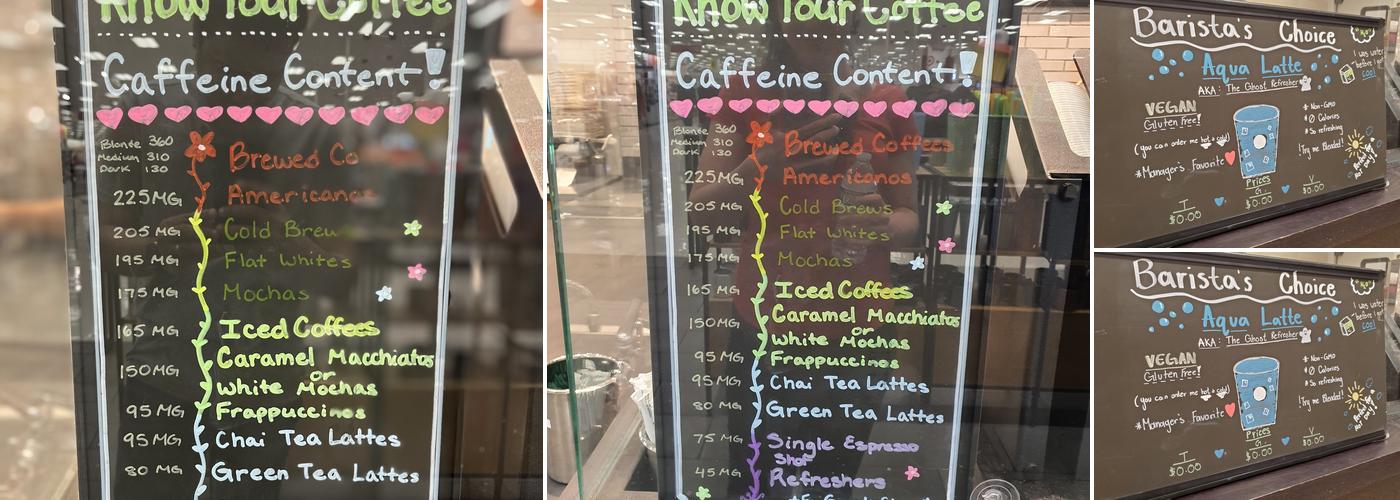 Know Your Coffee
Caffeine Content!
Blonde 360
Medium 310
Dark 130
Brewed Co
225MG Americanos
205 MG Cold Brews
195 MG Flat Whites
175 MG Mochas
165 MG Iced Coffees
150MG Caramel Macchiatos
or
White Mochas
95 MG Frappuccinos
95 MG Chai Tea Lattes
80 MG Green Tea Lattes
Know Your Coffee
Caffeine Content!
Blonde 360
Medium 310
Dark 130
Brewed Coffees
225MG Americanos
205 MG Cold Brews
195MG Flat Whites
175MG Mochas
165 MG Iced Coffees
150MG Caramel Macchiatos
or
White Mochas
95 MG Frappuccinos
95MG Chai Tea Lattes
80 MG Green Tea Lattes
75 MG Single Espresso
Shot
45MG Refreshers
Barista's Choice
Aqua Latte
AKA: The Ghost Refresher
I was water
before I got
cool
VEGAN
Gluten free!
(you can order me hot & cold)
*Manager's Favorite
* Non-GMO
* 0 Calories
* So refreshing
!Try me Blended!
Prices
T G V
$0.00 $0.00 $0.00
Barista's Choice
Aqua Latte
AKA: The Ghost Refresher
I was water
before I got
cool
VEGAN
Gluten free!
(you can order me hot & cold)
*Manager's Favorite
* Non-GMO
* 0 Calories
* So refreshing
!Try me Blended!
Prices
T G V
$0.00 $0.00 $0.00